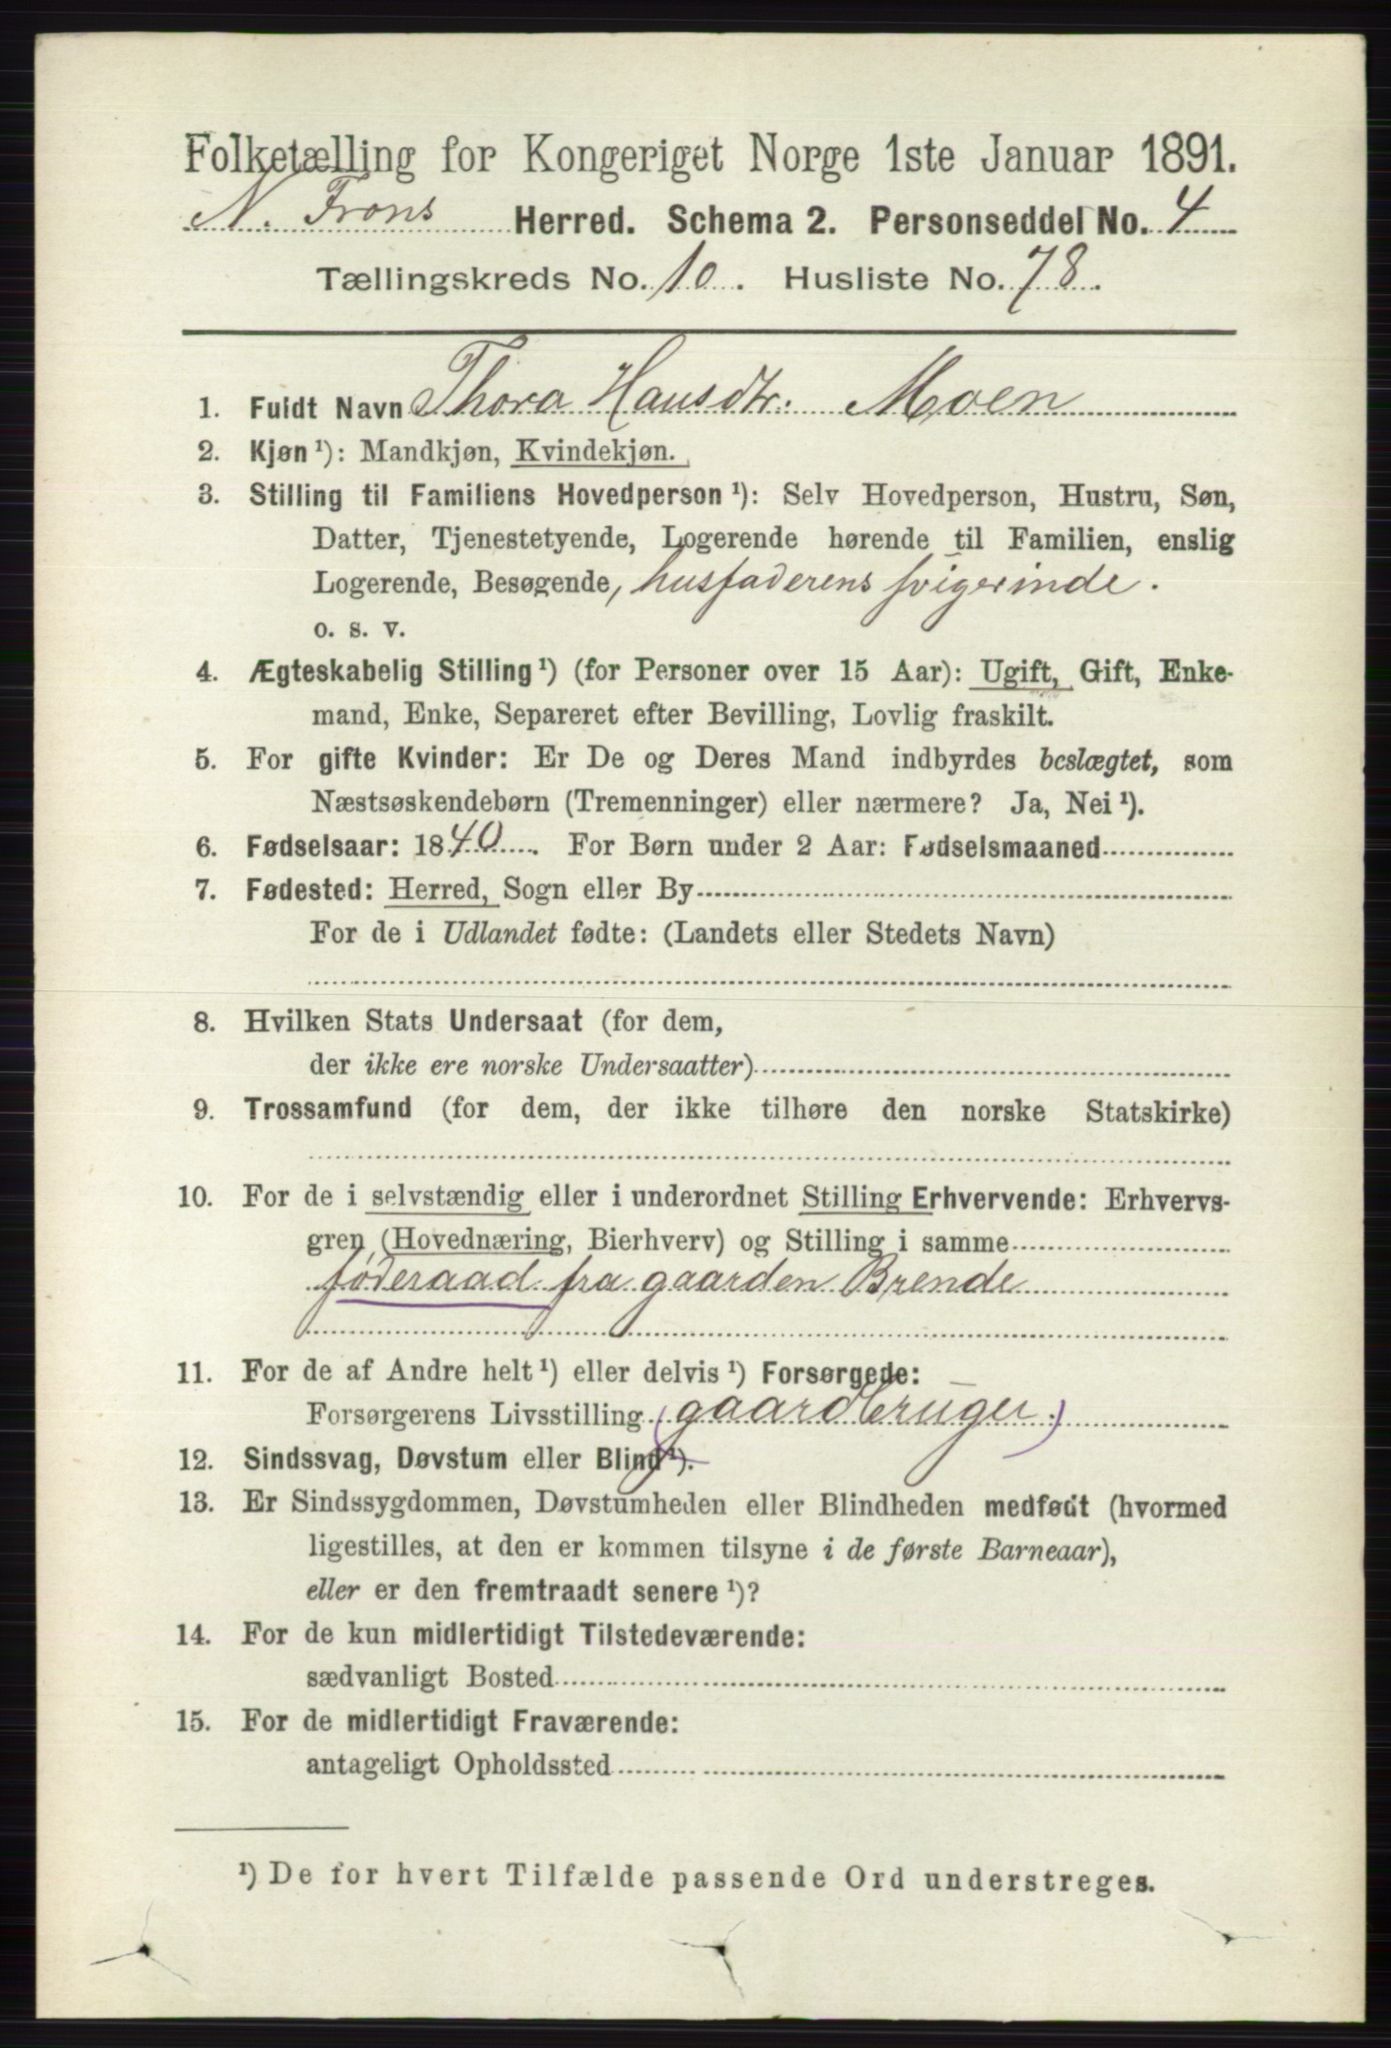 Folketælling for Kongeriget Norge 1ste Januar 1891.
N. Frons Herred. Schema 2. Personseddel No. 4
Tællingskreds No. 10. Husliste No. 78.
1. Fuldt Navn Thora Hansdtr. Moen
2. Kjøn ¹): Mandkjøn, Kvindekjøn.
3. Stilling til Familiens Hovedperson ¹): Selv Hovedperson, Hustru, Søn,
Datter, Tjenestetyende, Logerende hørende til Familien, enslig
Logerende, Besøgende, husfaderens svigerinde.
o. s. v.
4. Ægteskabelig Stilling ¹) (for Personer over 15 Aar): Ugift, Gift, Enke-
mand, Enke, Separeret efter Bevilling, Lovlig fraskilt.
5. For gifte Kvinder: Er De og Deres Mand indbyrdes beslægtet, som
Næstsøskendebørn (Tremenninger) eller nærmere? Ja, Nei ¹).
6. Fødselsaar: 1840. For Børn under 2 Aar: Fødselsmaaned
7. Fødested: Herred, Sogn eller By
For de i Udlandet fødte: (Landets eller Stedets Navn)
8. Hvilken Stats Undersaat (for dem,
der ikke ere norske Undersaatter)
9. Trossamfund (for dem, der ikke tilhøre den norske Statskirke)
10. For de i selvstændig eller i underordnet Stilling Erhvervende: Erhvervs-
gren (Hovednæring, Bierhverv) og Stilling i samme
føderaad fra gaarden Brende
11. For de af Andre helt ¹) eller delvis ¹) Forsørgede:
Forsørgerens Livsstilling (gaardbruger.)
12. Sindssvag, Døvstum eller Blind ¹).
13. Er Sindssygdommen, Døvstumheden eller Blindheden medfødt (hvormed
ligestilles, at den er kommen tilsyne i de første Barneaar),
eller er den fremtraadt senere ¹)?
14. For de kun midlertidigt Tilstedeværende:
sædvanligt Bosted
15. For de midlertidigt Fraværende:
antageligt Opholdssted
¹) De for hvert Tilfælde passende Ord understreges.